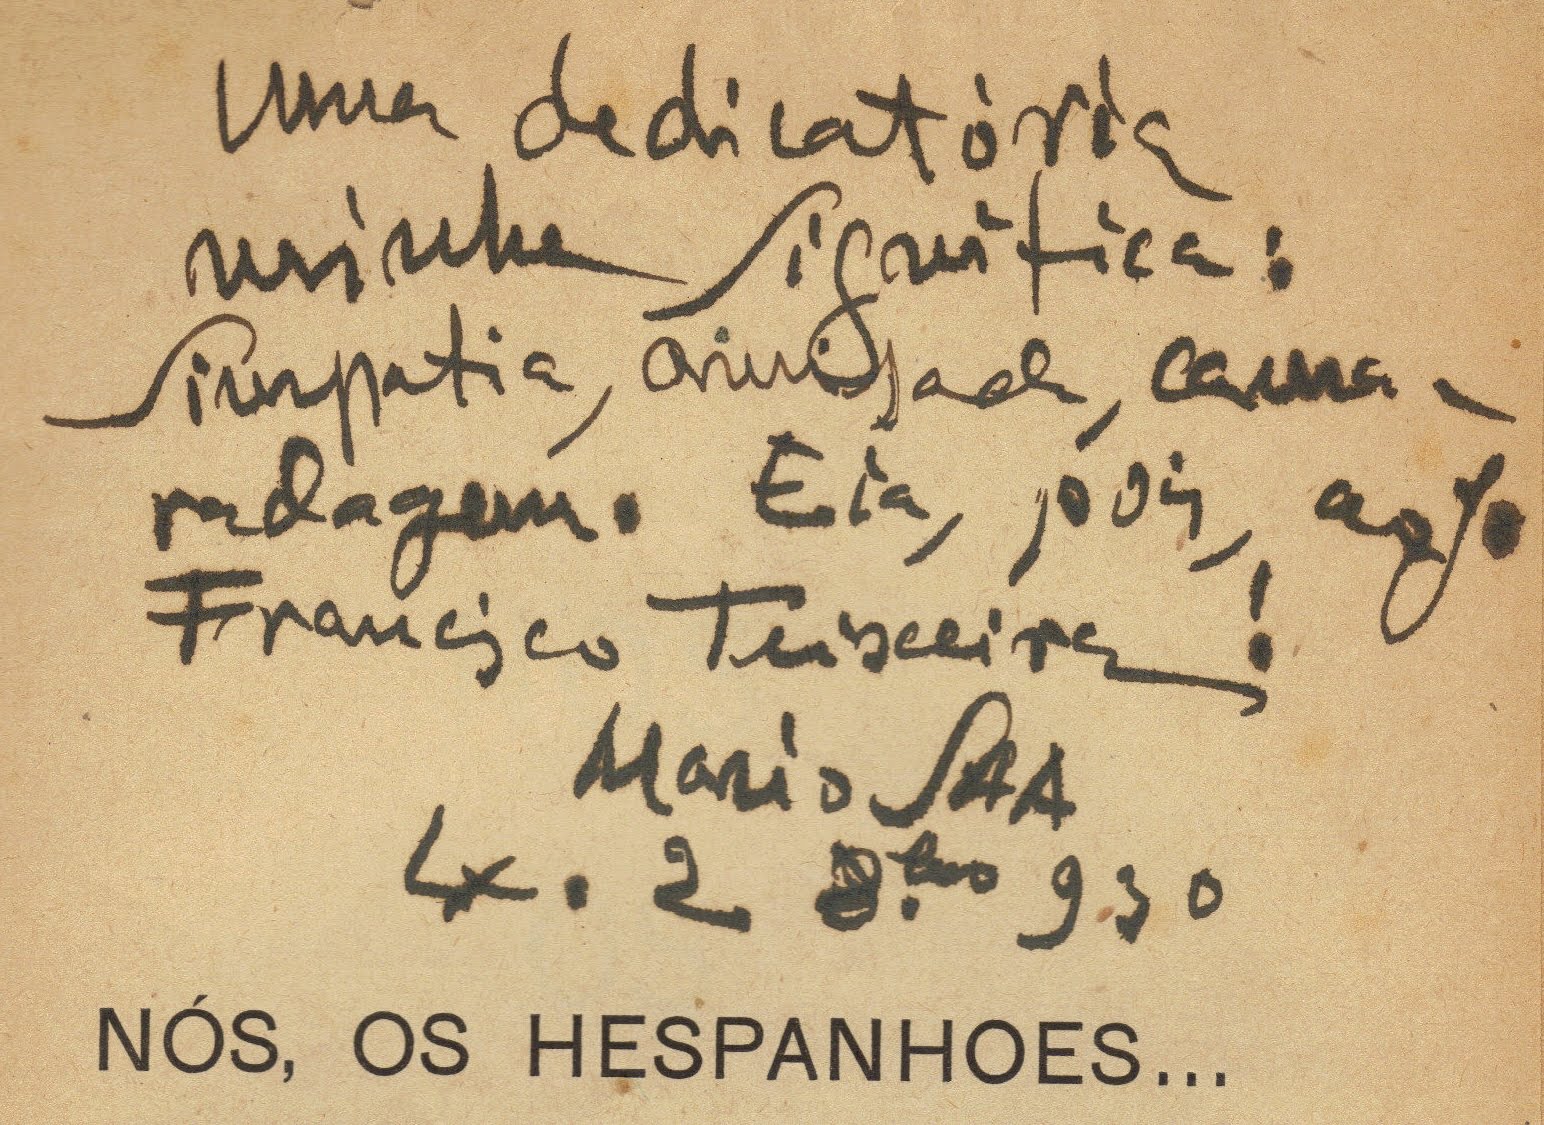 Uma dedicatória
minha significa:
simpatia, amisade, cama-
radagem. Eia, pois,
Francisco Teixeira!
Mario SAA
Lx. 2 8.bro 930
NÓS, OS HESPANHOES...